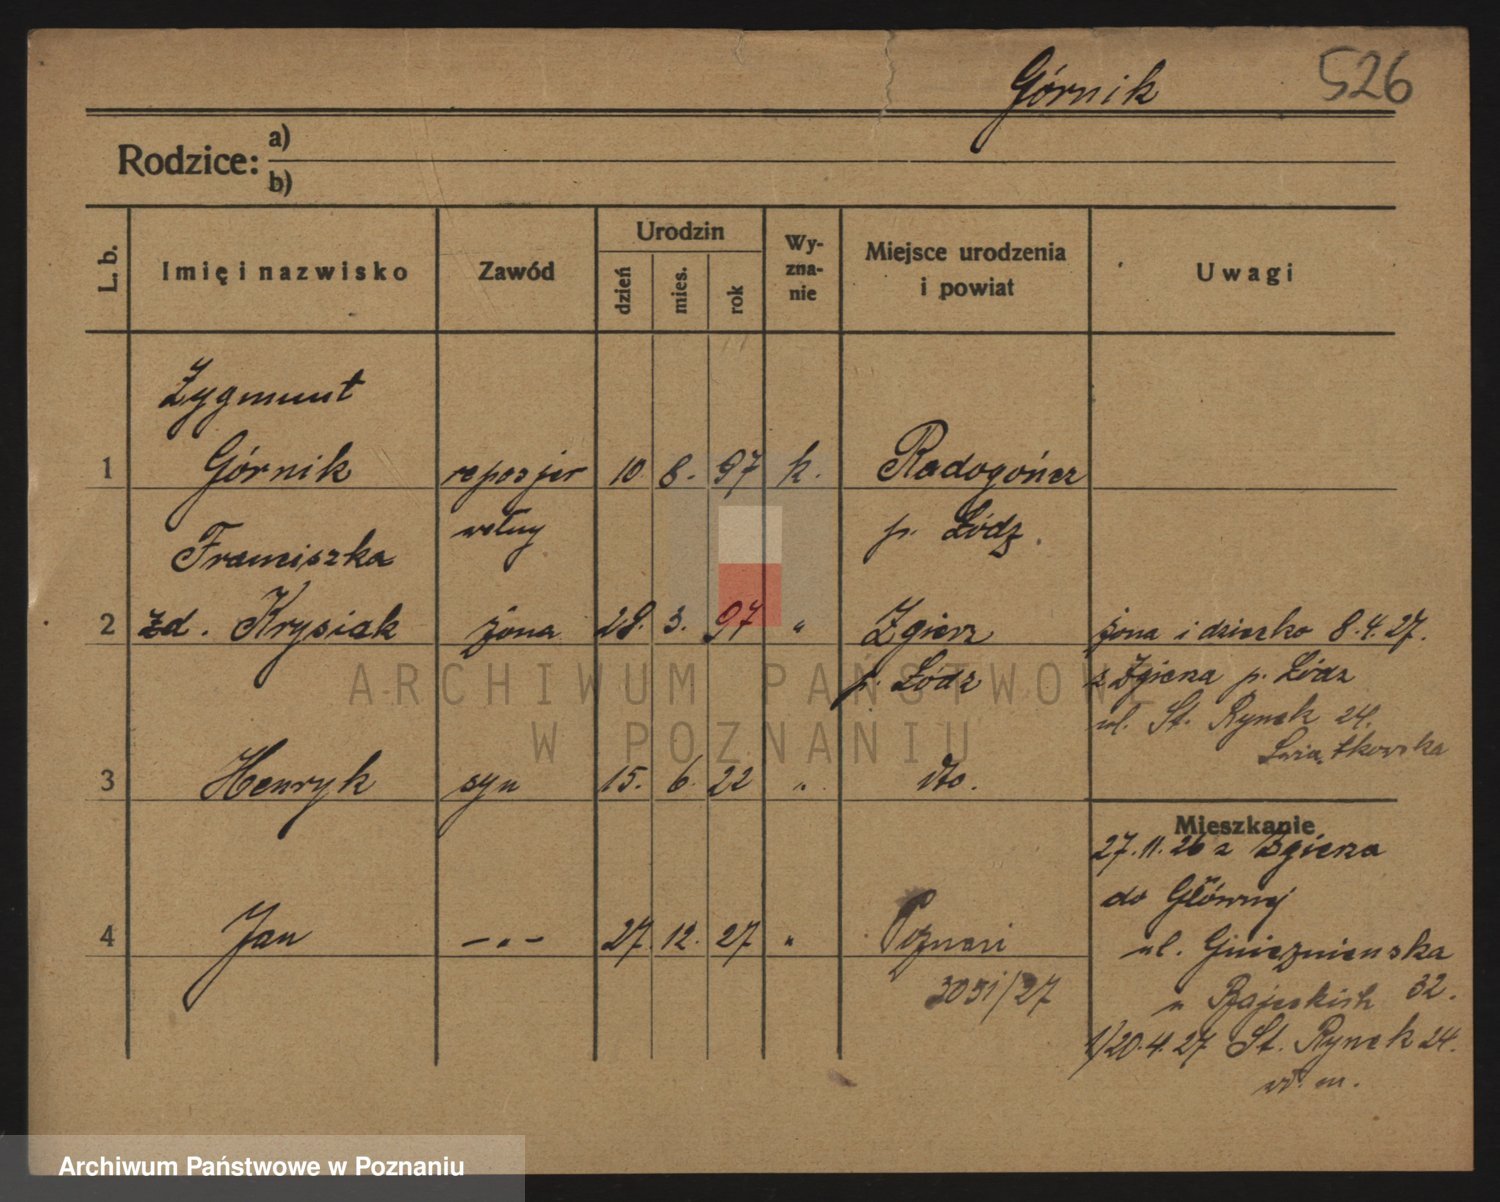 Górnik 526
Rodzice: a)
b)
L. b. Imię i nazwisko Zawód Urodzin dzień mies. rok Wy-zna-nie Miejsce urodzenia i powiat Uwagi
Zygmunt
1 Górnik reposjer 10. 8. 97 k. Radogończ
wełny p. Łódź
Franciszka
2 zd. Krysiak żona 28. 3. 97 " Zgierz żona i dziecko 8.4.27.
p. Łódź z Zgierza p. Łódź
ul. St. Rynek 24.
3 Henryk syn 15. 6. 22 " dto. Świątkowska
Mieszkanie
27.11.26 z Zgierza
do Głównej
4 Jan — " — 27. 12. 27 " Poznań ul. Gnieznienska
3051/27 u Rajeskich 32.
1/20.4.27 St. Rynek 24.
ARCHIWUM PAŃSTWOWE
W POZNANIU
Archiwum Państwowe w Poznaniu